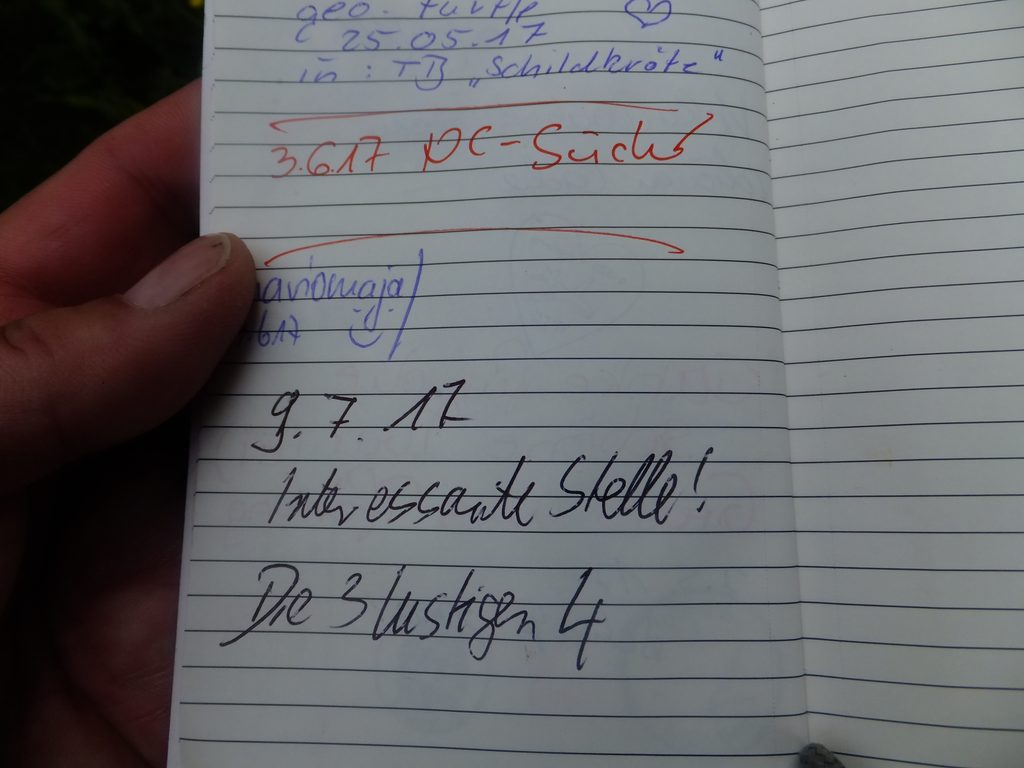 geo. turtle
25.05.17
in: TB „Schildkröte"
3.6.17
mariomaja
.6.17
9.7.17
Interessante Stelle!
Die 3 lustigen 4